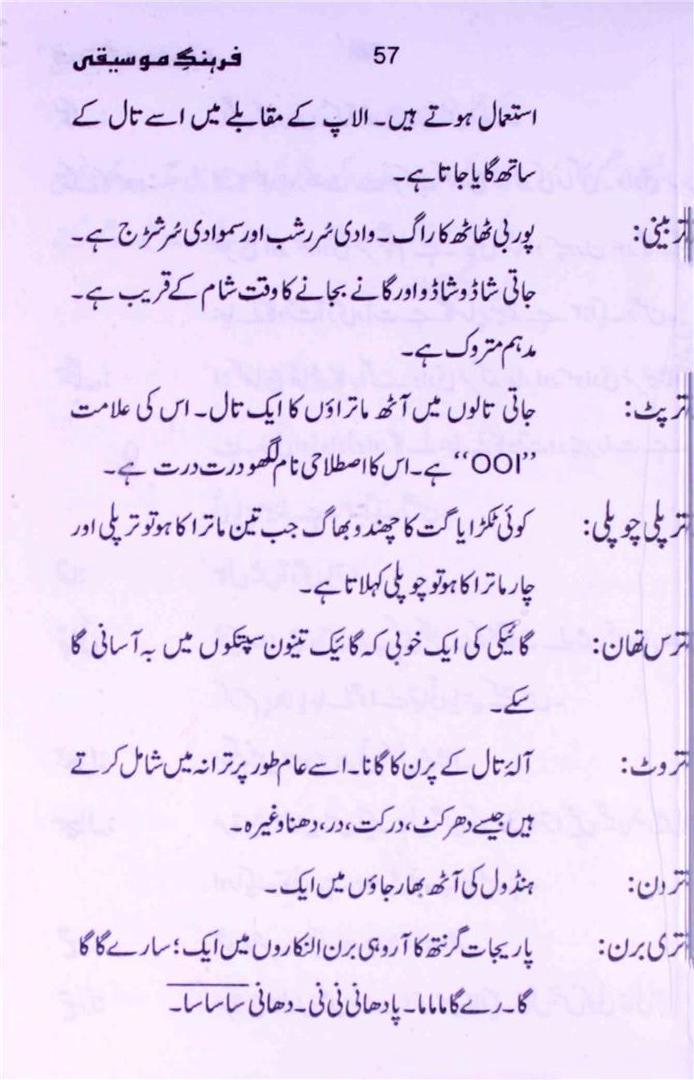 57 فرہنگِ موسیقی
استعمال ہوتے ہیں۔ الاپ کے مقابلے میں اسے تال کے
ساتھ گایا جاتا ہے۔
تربینی: پوربی ٹھاٹھ کا راگ۔ وادی سُر رشب اور سموادی سُر شڑج ہے۔
جاتی شاڈو شاڈو اور گانے بجانے کا وقت شام کے قریب ہے۔
مدہم متروک ہے۔
ترپٹ: جاتی تالوں میں آٹھ ماتراؤں کا ایک تال۔ اس کی علامت
”OOI“ ہے۔ اس کا اصطلاحی نام لگھو درت درت ہے۔
ترپلی چوپلی: کوئی ٹکڑا یا گت کا چھند و بھاگ جب تین ماترا کا ہو تو ترپلی اور
چار ماترا کا ہو تو چوپلی کہلاتا ہے۔
ترس تھان: گائیکی کی ایک خوبی کہ گائیک تینوں سپتکوں میں بہ آسانی گا
سکے۔
تروٹ: آلۂ تال کے پرن کا گانا۔ اسے عام طور پر ترانہ میں شامل کرتے
ہیں جیسے دھرکٹ، درکت، در، دھنا وغیرہ۔
ترون: ہنڈول کی آٹھ بھارجاؤں میں ایک۔
تری برن: پاریجات گرنتھ کا آروہی برن النکاروں میں ایک؛ سا رے گا گا
گا۔ رے گا ما ما ما۔ پا دھا نی نی نی۔ دھا نی سا سا سا۔